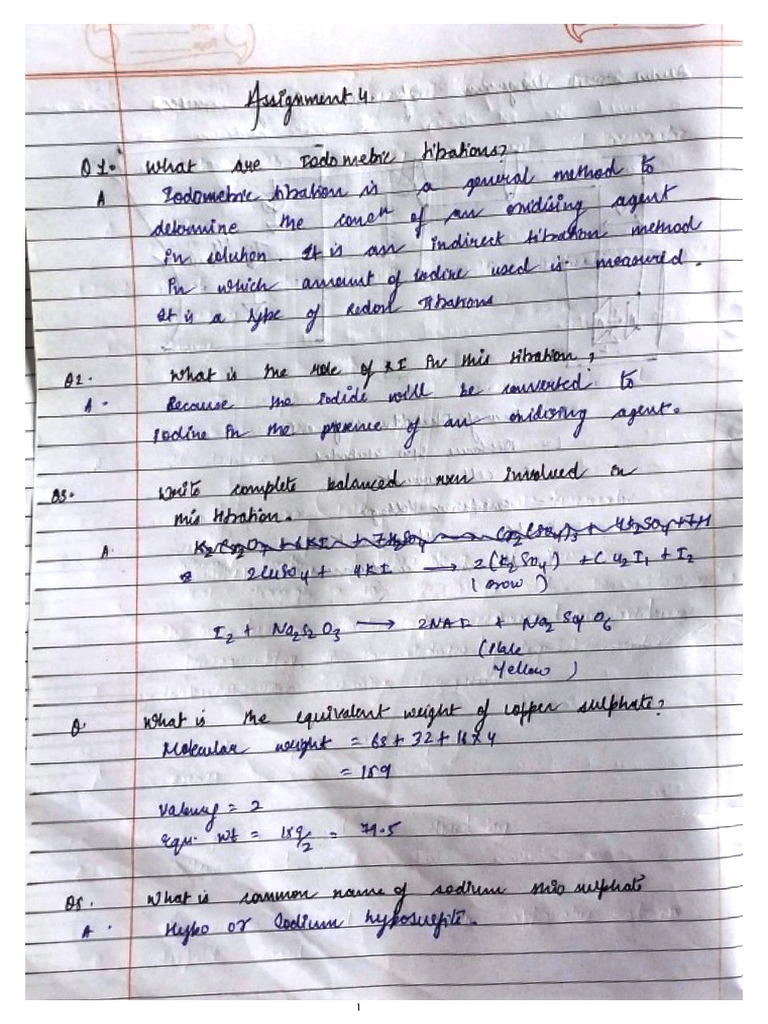 Assignment 4.
Q1. What are Iodometric titrations?
A Iodometric titration is a general method to
determine the concn of an oxidising agent
in solution. It is an indirect titration method
in which amount of iodine used is measured.
It is a type of redox titrations
Q2. What is the role of KI in this titration,
A. Because the iodide will be converted to
iodine in the presence of an oxidising agent.
Q3. Write complete balanced rxn involved in
this titration.
A. K2Cr2O7 + 6KI + 7H2SO4 → Cr2(SO4)3 + 4K2SO4 + 7H
2CuSO4 + 4KI → 2(K2SO4) + Cu2I2 + I2
I2 + Na2S2O3 → 2NAI + Na2S4O6
(Pale
Yellow)
Q What is the equivalent weight of copper sulphate?
Molecular weight = 63 + 32 + 16x4
= 159
Valency = 2
Equ. Wt = 159/2 = 79.5
Q5. What is common name of sodium thio sulphate
A. Hypo or Sodium hyposulfite.